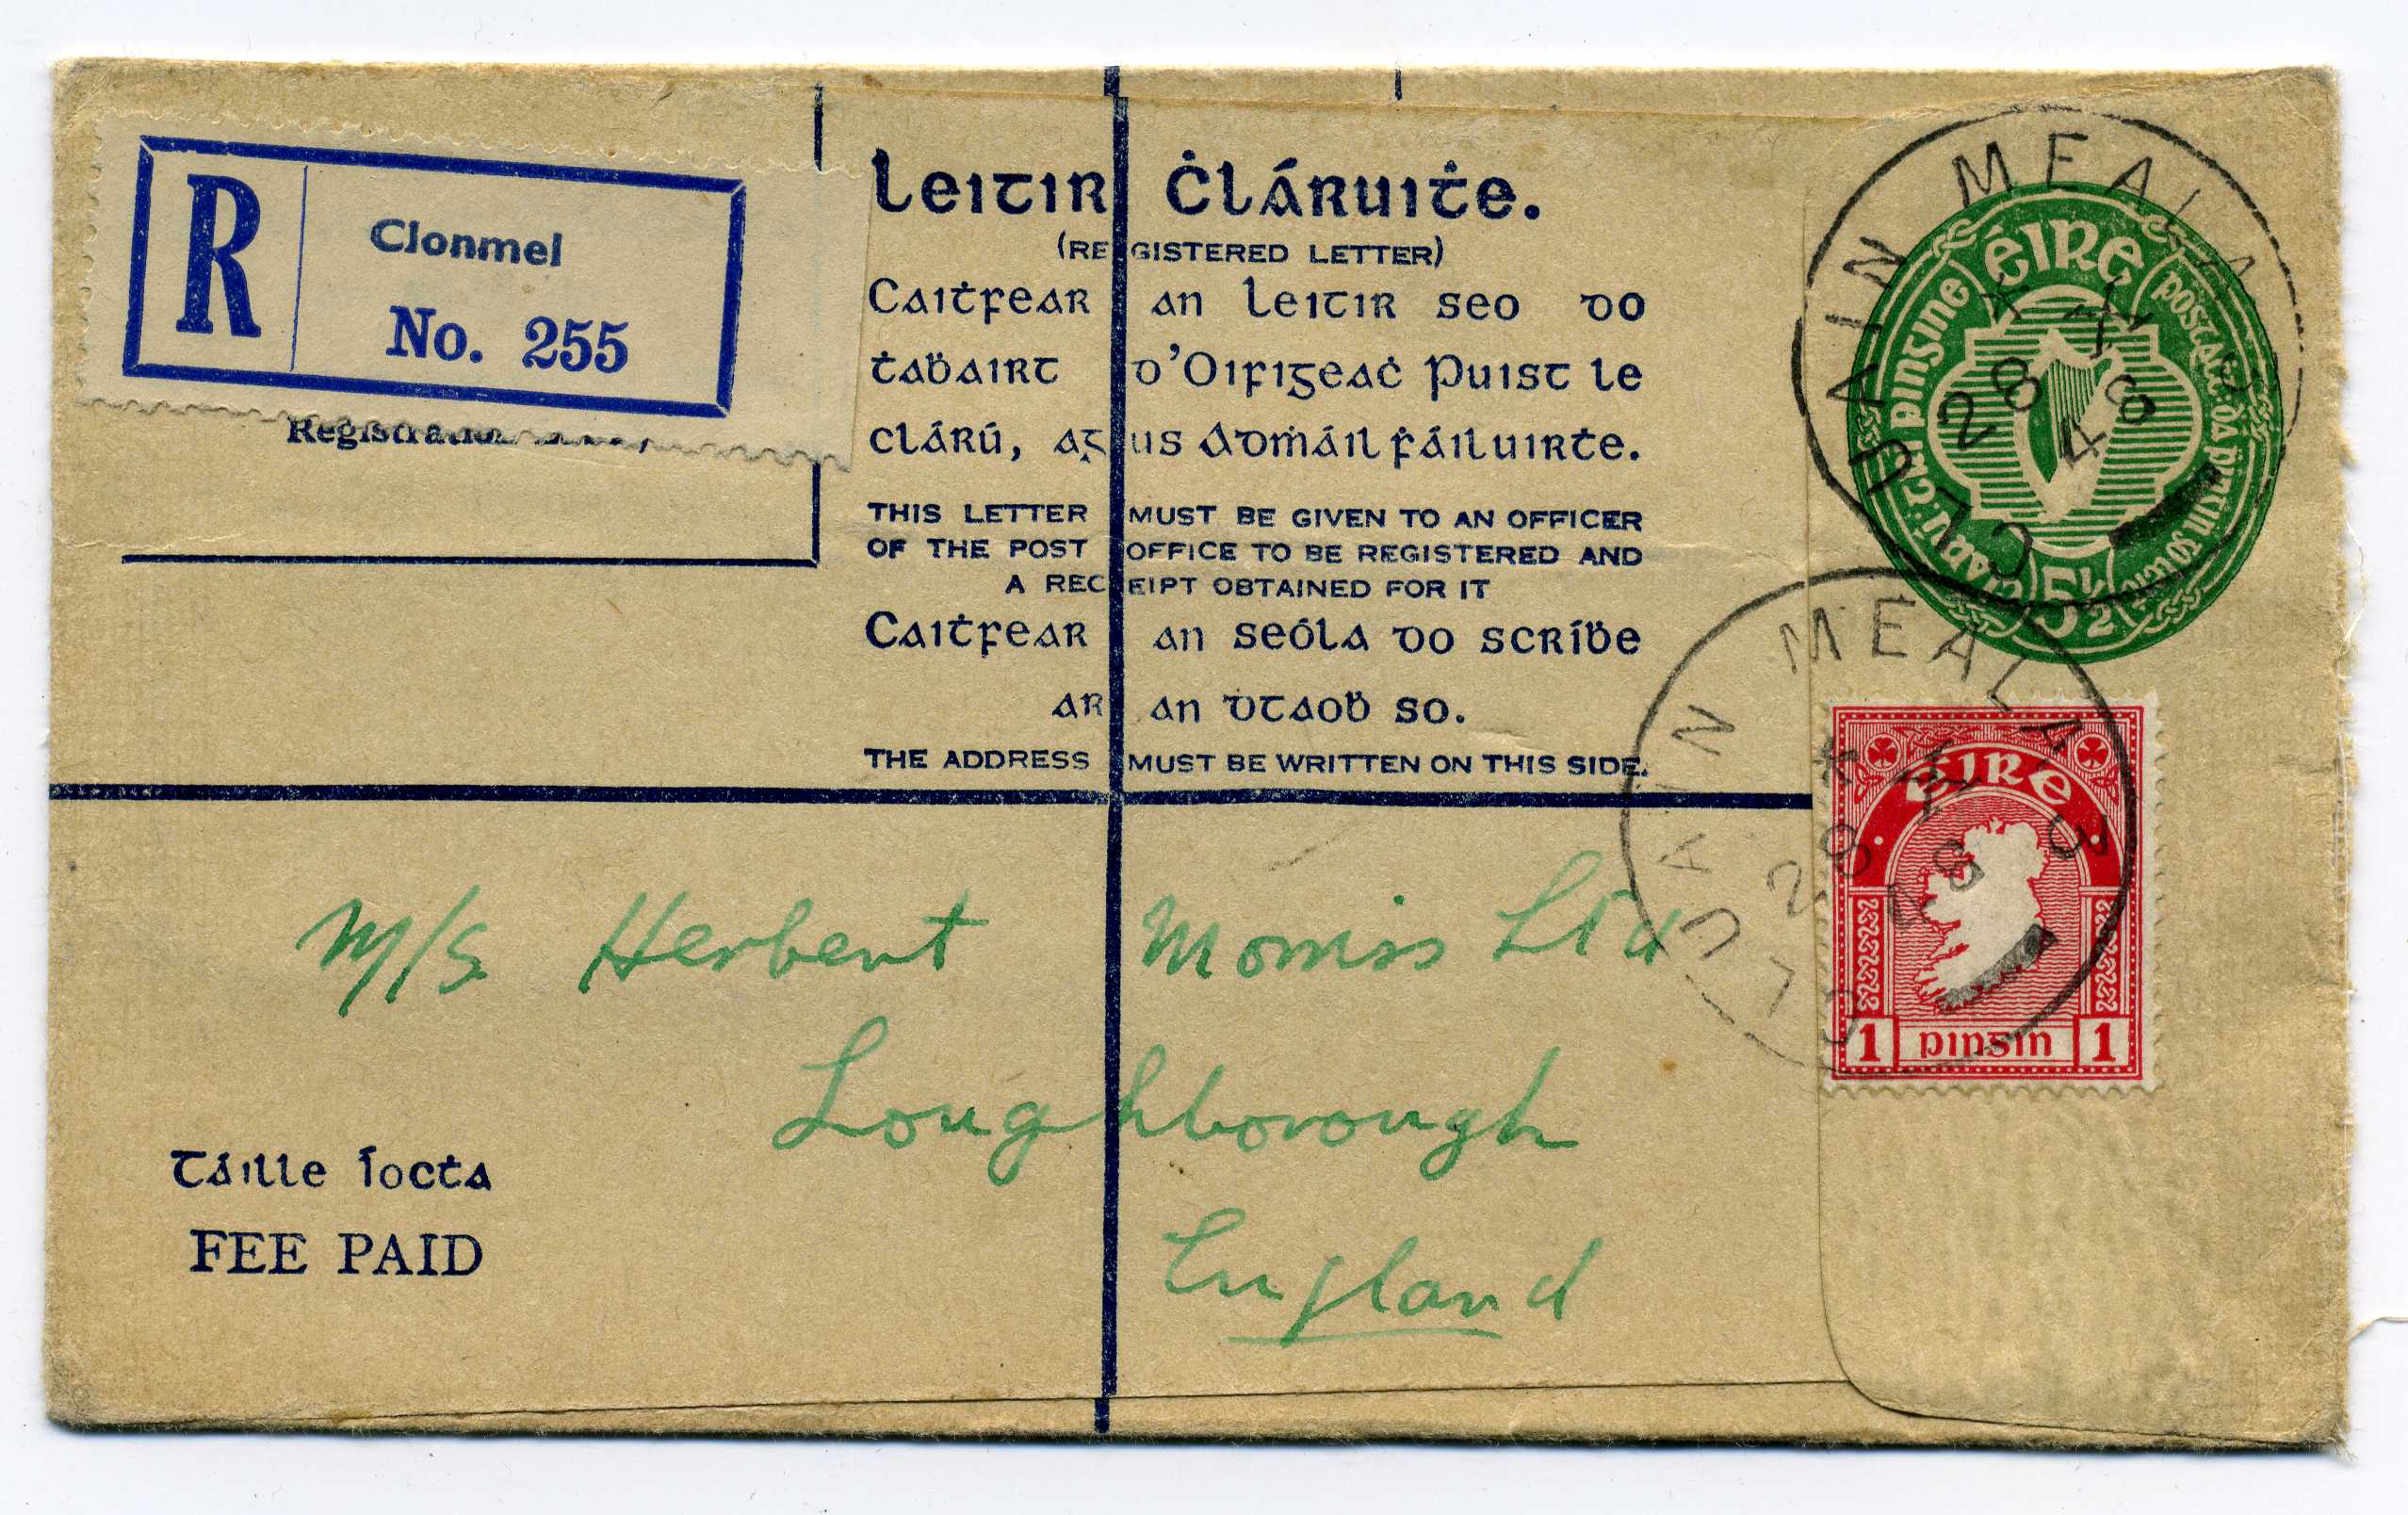 R
Clonmel
No. 255
Registration
Leitir Ċláruiṫe.
(REGISTERED LETTER)
Caiṫfear an leitir seo do
ṫaḃairt d'Oifigeaċ Puist le
clárú, agus Admáil ḟáiluirṫe.
THIS LETTER MUST BE GIVEN TO AN OFFICER
OF THE POST OFFICE TO BE REGISTERED AND
A RECEIPT OBTAINED FOR IT
Caiṫfear an seóla do scríḃe
ar an dtaoḃ so.
THE ADDRESS MUST BE WRITTEN ON THIS SIDE.
CLUAIN MEALA
28
48
éire
postas: dá pingin
5½
CLUAIN MEALA 3
28
48
éire
1 pingin 1
M/S Herbert Morriss Ltd
Loughborough
England
Táille Íocṫa
FEE PAID